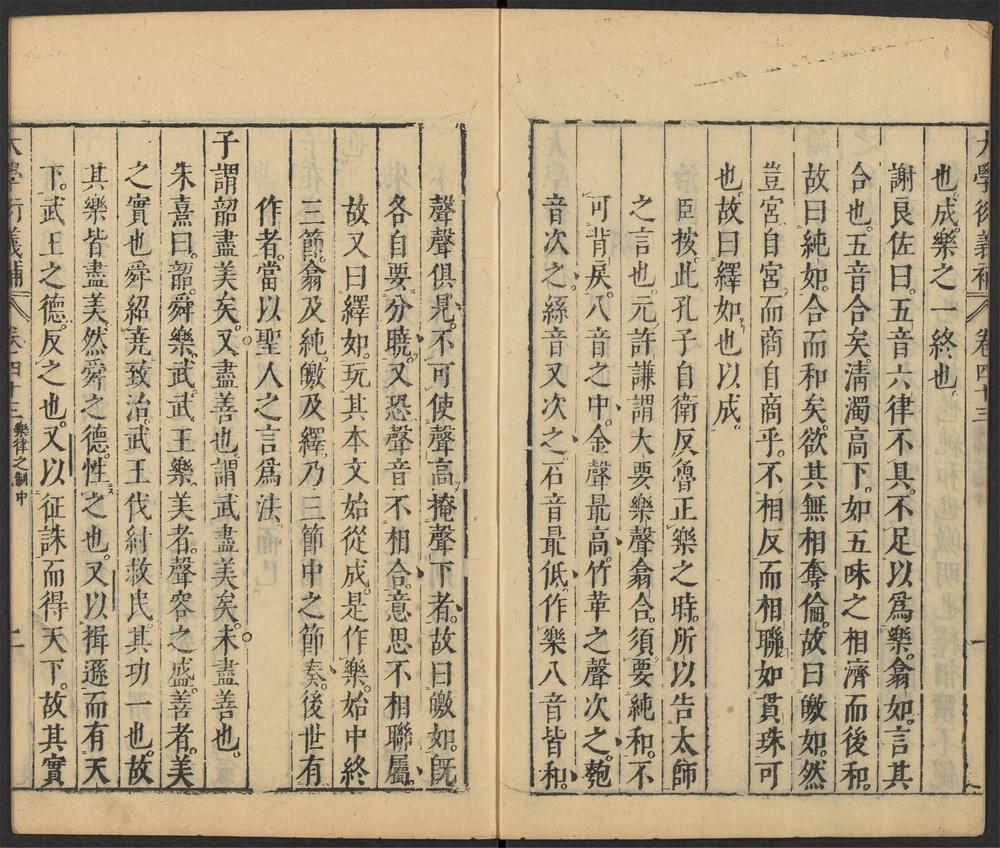 大學衍義補 卷四十三 一
也。成。樂之一終也
謝良佐曰。五音六律不具。不足以爲樂。翕如。言其
合也。五音合矣。淸濁高下。如五味之相濟而後和。
故曰純如。合而和矣。欲其無相奪倫。故曰皦如。然
豈宮自宮。而商自商乎。不相反而相聯。如貫珠可
也。故曰繹如也以成。
臣按。此孔子自衛反魯正樂之時。所以告太師
之言也。元許謙謂大要樂聲翕合。須要純和。不
可背戾。八音之中。金聲最高。竹革之聲次之。匏
音次之。絲音又次之。石音最低。作樂八音皆和。
聲聲俱見。不可使聲高掩聲下者。故曰皦如。旣
各自要分曉。又恐聲音不相合。意思不相聯屬。
故又曰繹如。玩其本文始從成。是作樂。始中終
三節。翕及純。皦及繹。乃三節中之節奏。後世有
作者。當以聖人之言爲法
子謂韶盡美矣。又盡善也。謂武盡美矣。未盡善也。
朱熹曰。韶。舜樂。武。武王樂。美者。聲容之盛。善者。美
之實也。舜紹堯致治。武王伐紂救民。其功一也。故
其樂皆盡美。然舜之德。性之也。又以揖遜而有天
下。武王之德。反之也。又以征誅而得天下。故其實
大學衍義補 卷四十三 樂律之制中 二